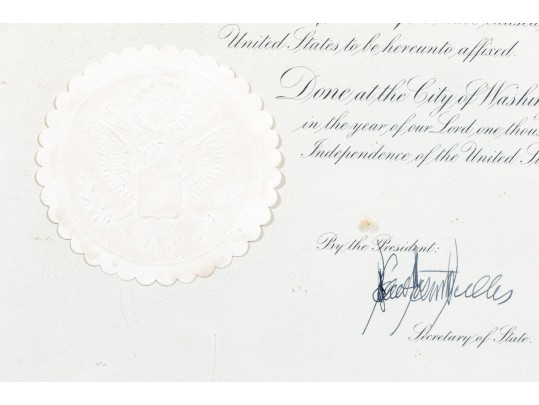 United States to be hereunto affixed.
Done at the City of Washin
in the year of our Lord one thou
Independence of the United St
By the President:
Secretary of State.